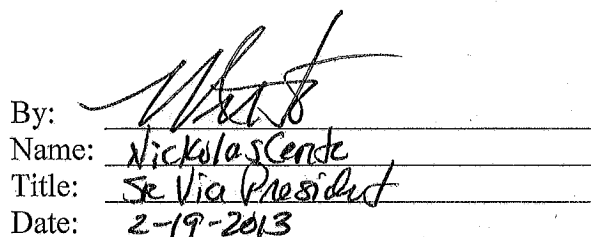 By:
Name: Nickolas Cente
Title: Sr Vice President
Date: 2-19-2013